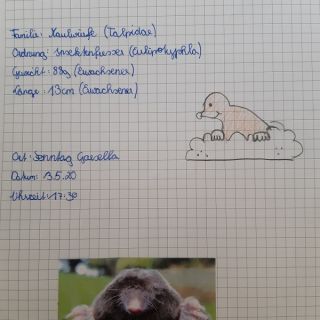 Familie: Maulwürfe (Talpidae)
Ordnung: Insektenfresser (Eulipotyphla)
Gewicht: 88g (Erwachsener)
Länge: 13cm (Erwachsener)
Ort: Sonntag
Datum: 3.5.20
Uhrzeit: 17:30